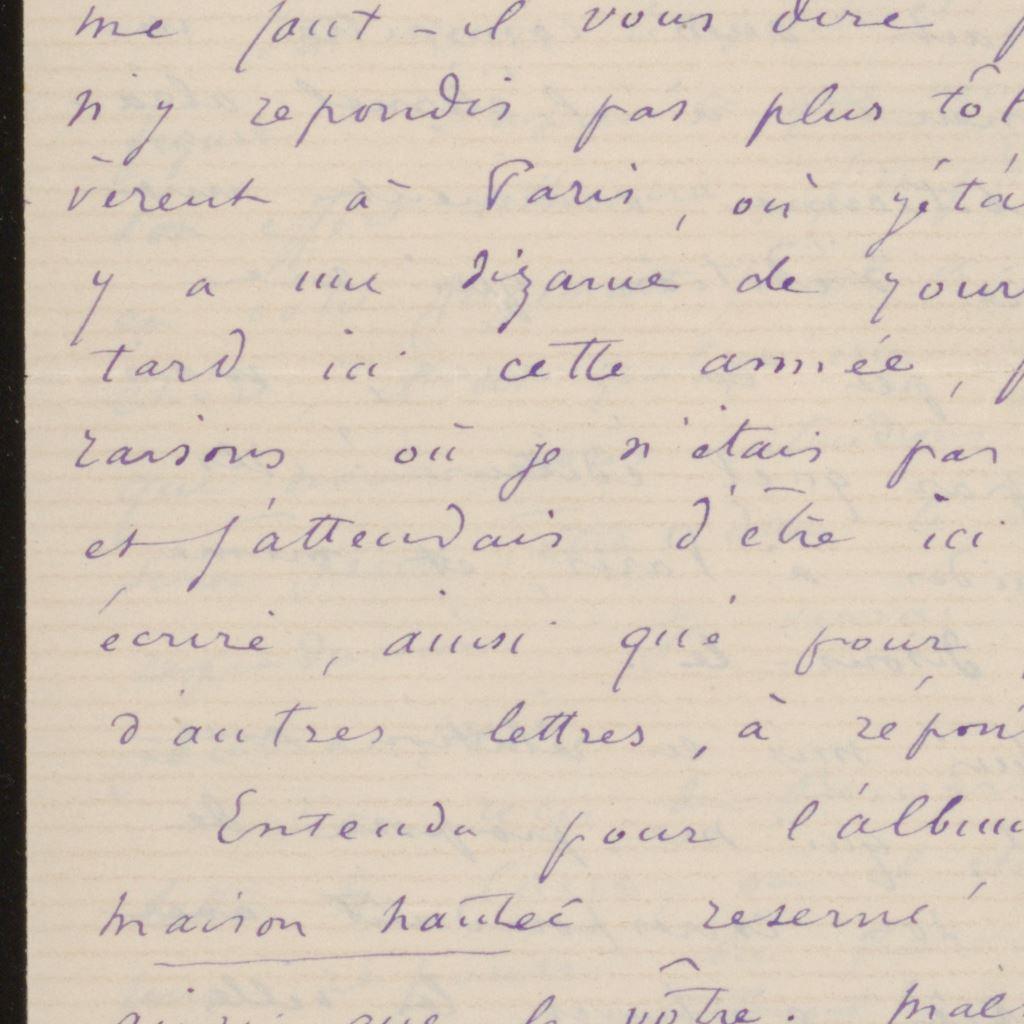 me faut-il vous dire
n'y repondis pas plus tôt
vèrent à Paris, où j'éta
y a une dizaine de jour
tard ici cette année,
raisons où je n'étais pas
et j'attendais d'être ici
écrire, ainsi que pour
d'autres lettres, à répon
Entendu pour l'album
maison hantée reservé
ainsi que le vôtre.